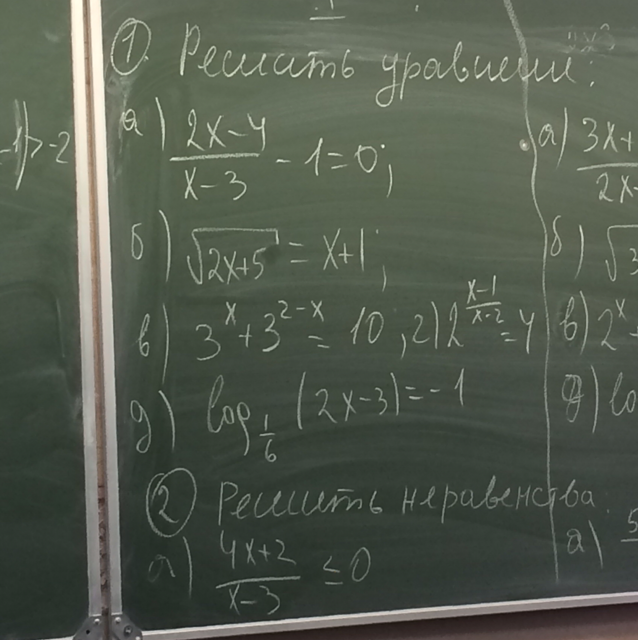 -1)>-2
1. Решить уравнени:
а) (2x-4)/(x-3) - 1 = 0;
б) √(2x+5) = x+1;
в) 3^x + 3^(2-x) = 10; г) 2^((x-1)/(x-2)) = 4
д) log_(1/6) (2x-3) = -1
2 Решить неравенства:
а) (4x+2)/(x-3) ≤ 0
а) 3x+
2x-
б) √3
в) 2^x
д) lo
а) 5